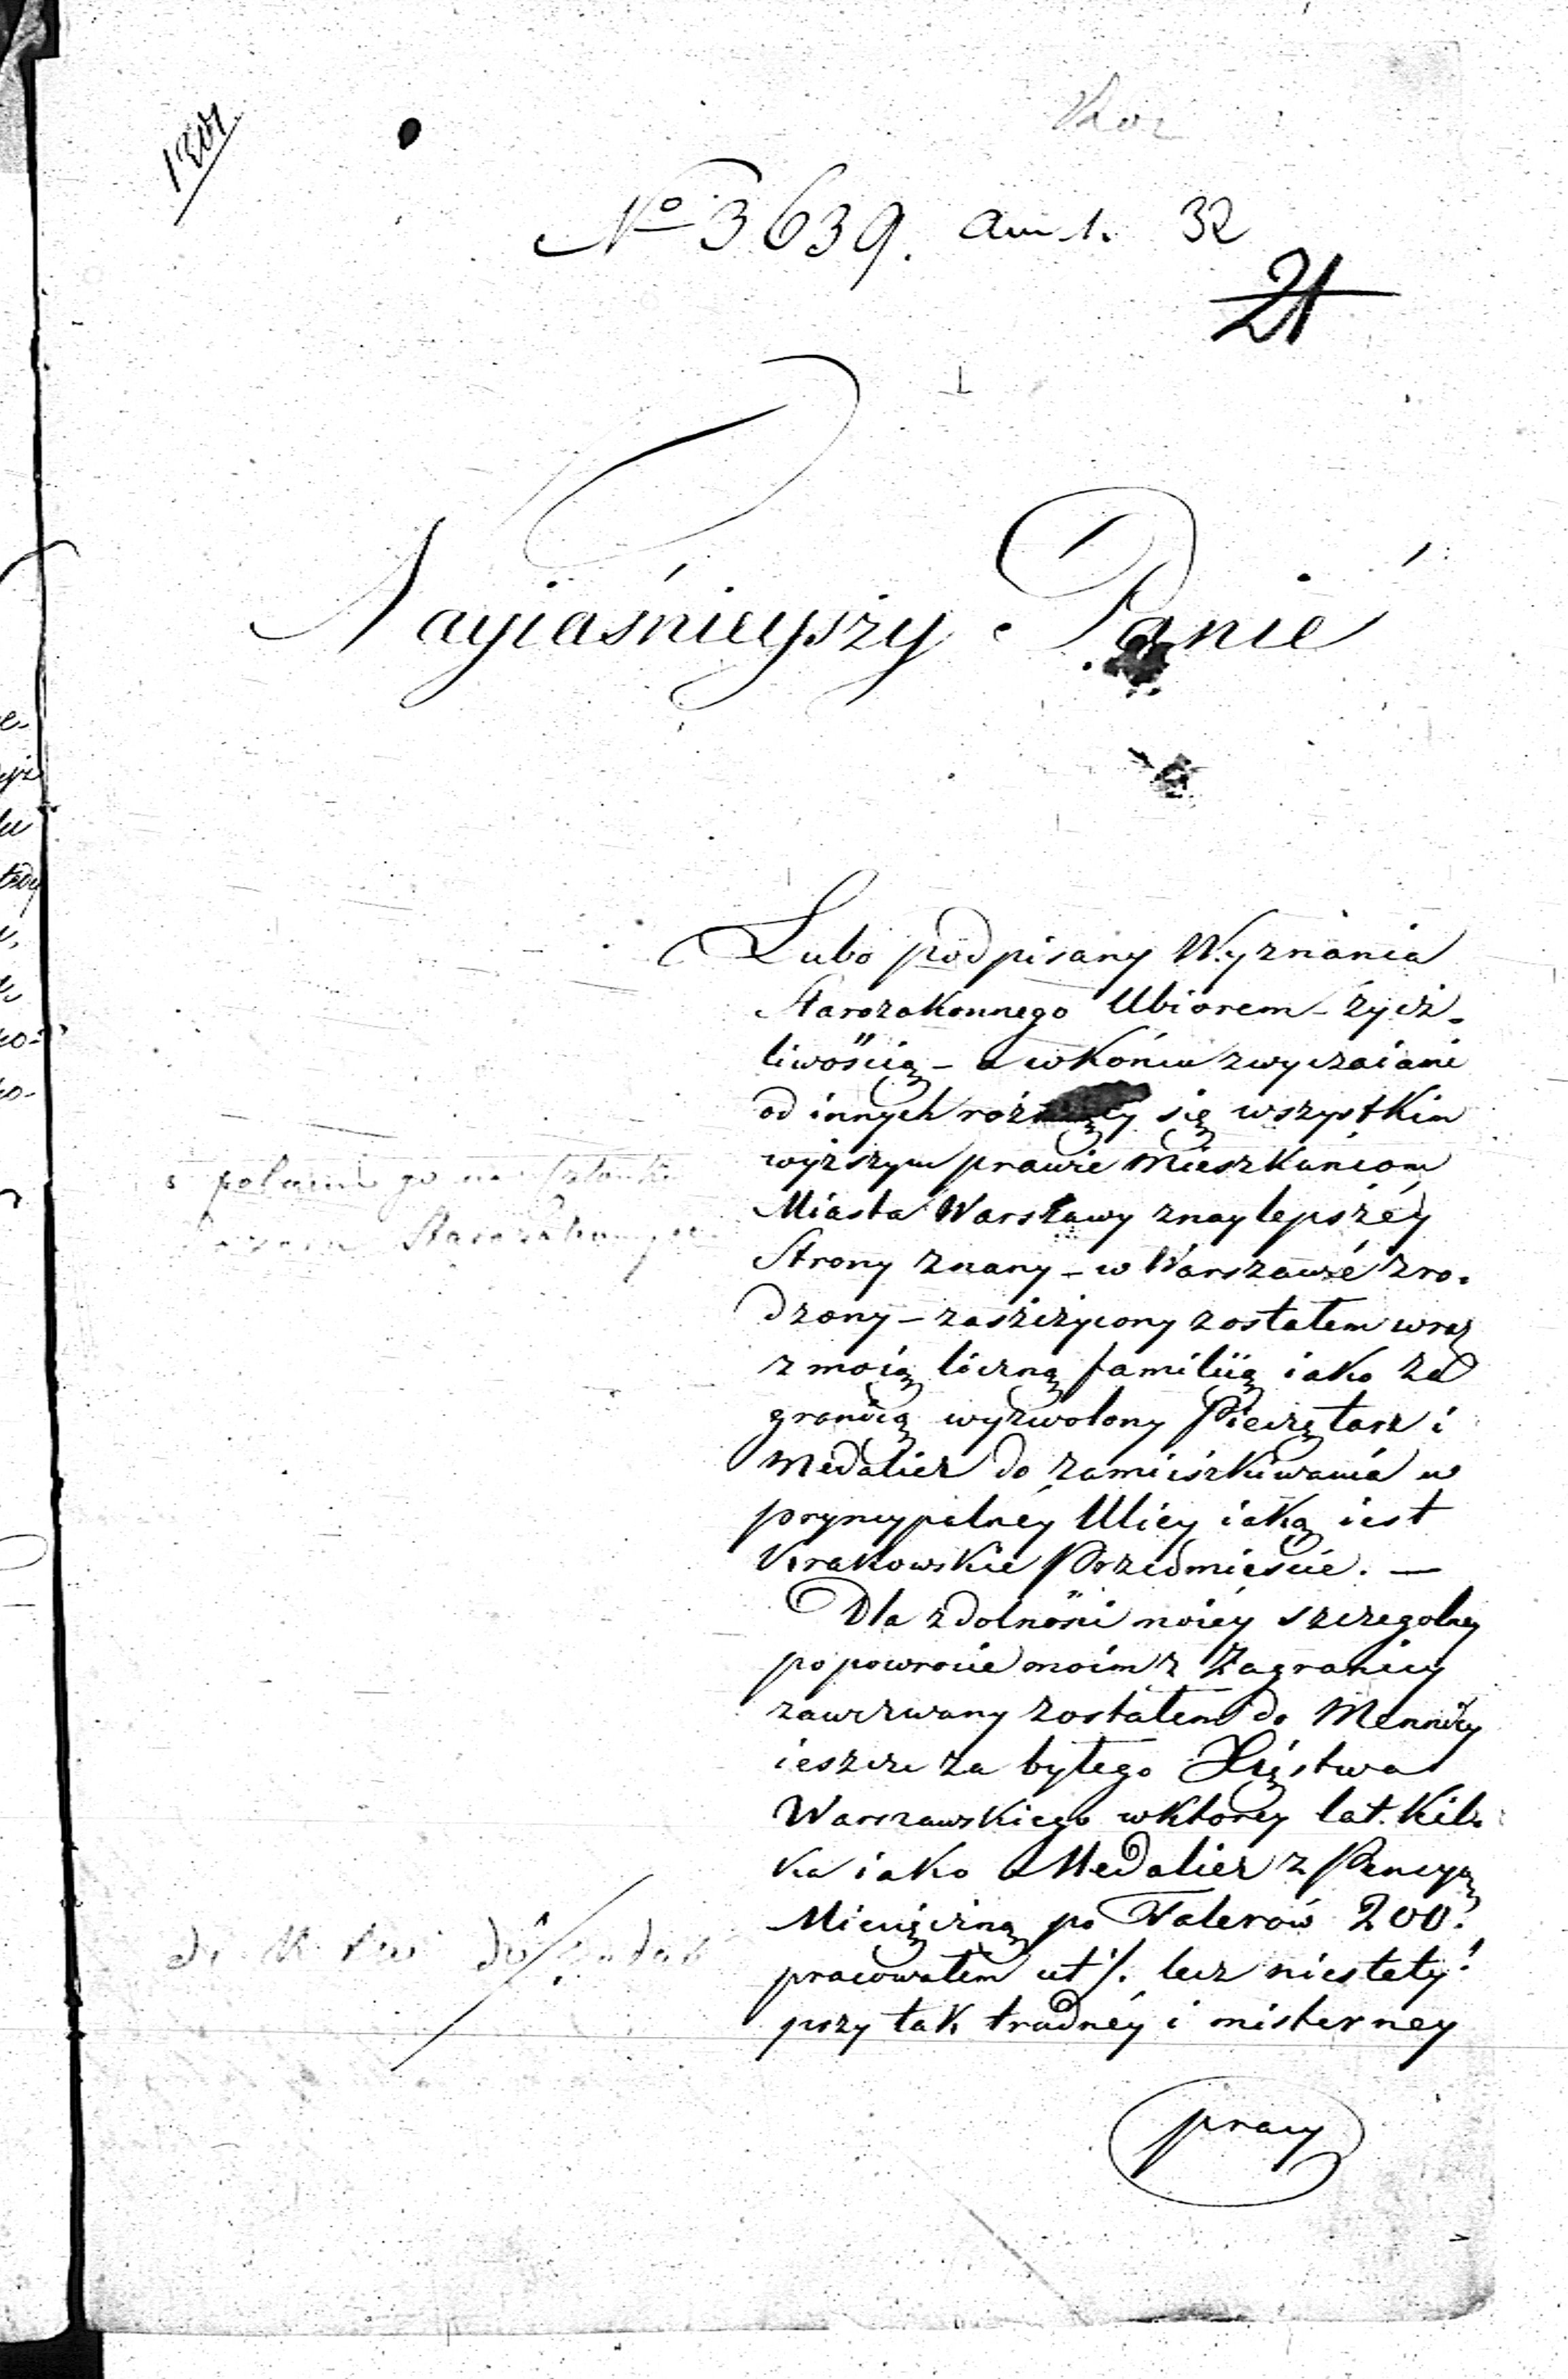 No 3639.
32
21
Nayiaśnieyszy Panie
Lubo podpisany Wyznania
Starozakonnego Ubiorem – życz-
liwością – a wkońcu zwyczaiami
od innych rożniący się wszystkim
wyższym prawie Mieszkańcom
Miasta Warszawy znaylepszéy
Strony znany – w Warszawie zro-
dzony – zaszczycony zostałem wraz
z moią liczną familiią iako za
granicą wyzwolony Pieczętarz i
Medalier do zamieszkiwania w
pryncypalnéy Ulicy iaką iest
Krakowskie Przedmieście. —
Dla zdolności moiéy szczegolney
po powrocie moim z Zagranicy
zawezwany zostałem do Mennicy
ieszcze za byłego Xięstwa
Warszawskiego wktorey lat kil-
ka iako Medalier z Pensyą
Miesięczną po Talerów 200.
pracowałem lecz niestety!
przy tak trudnéy i misterney
pracy
Starozakonnych